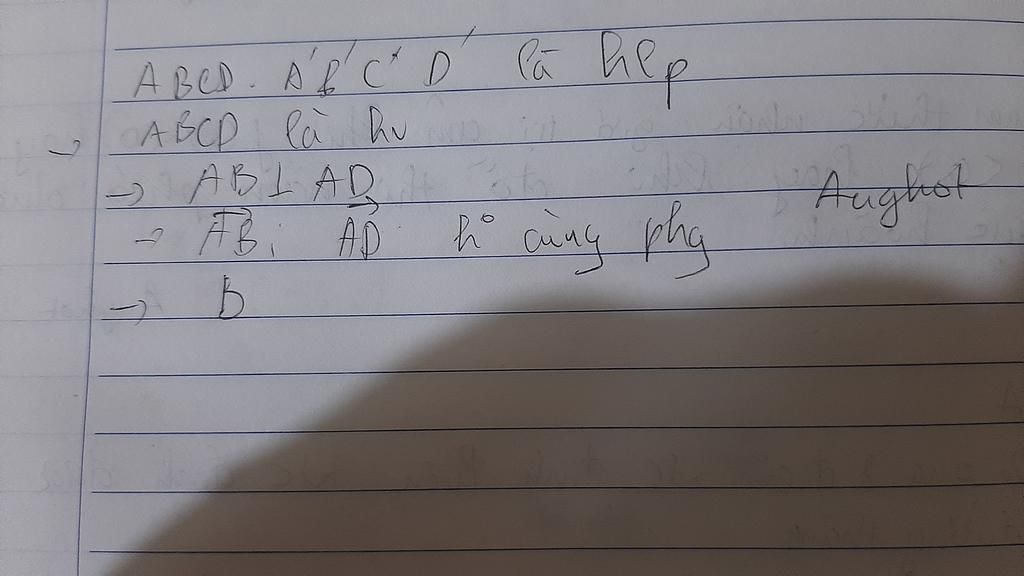 ABCD. A'B'C'D' là hlp
→ ABCD là hv
→ AB ⊥ AD
Aughot
→ AB; AD kº cùng phg
→ B